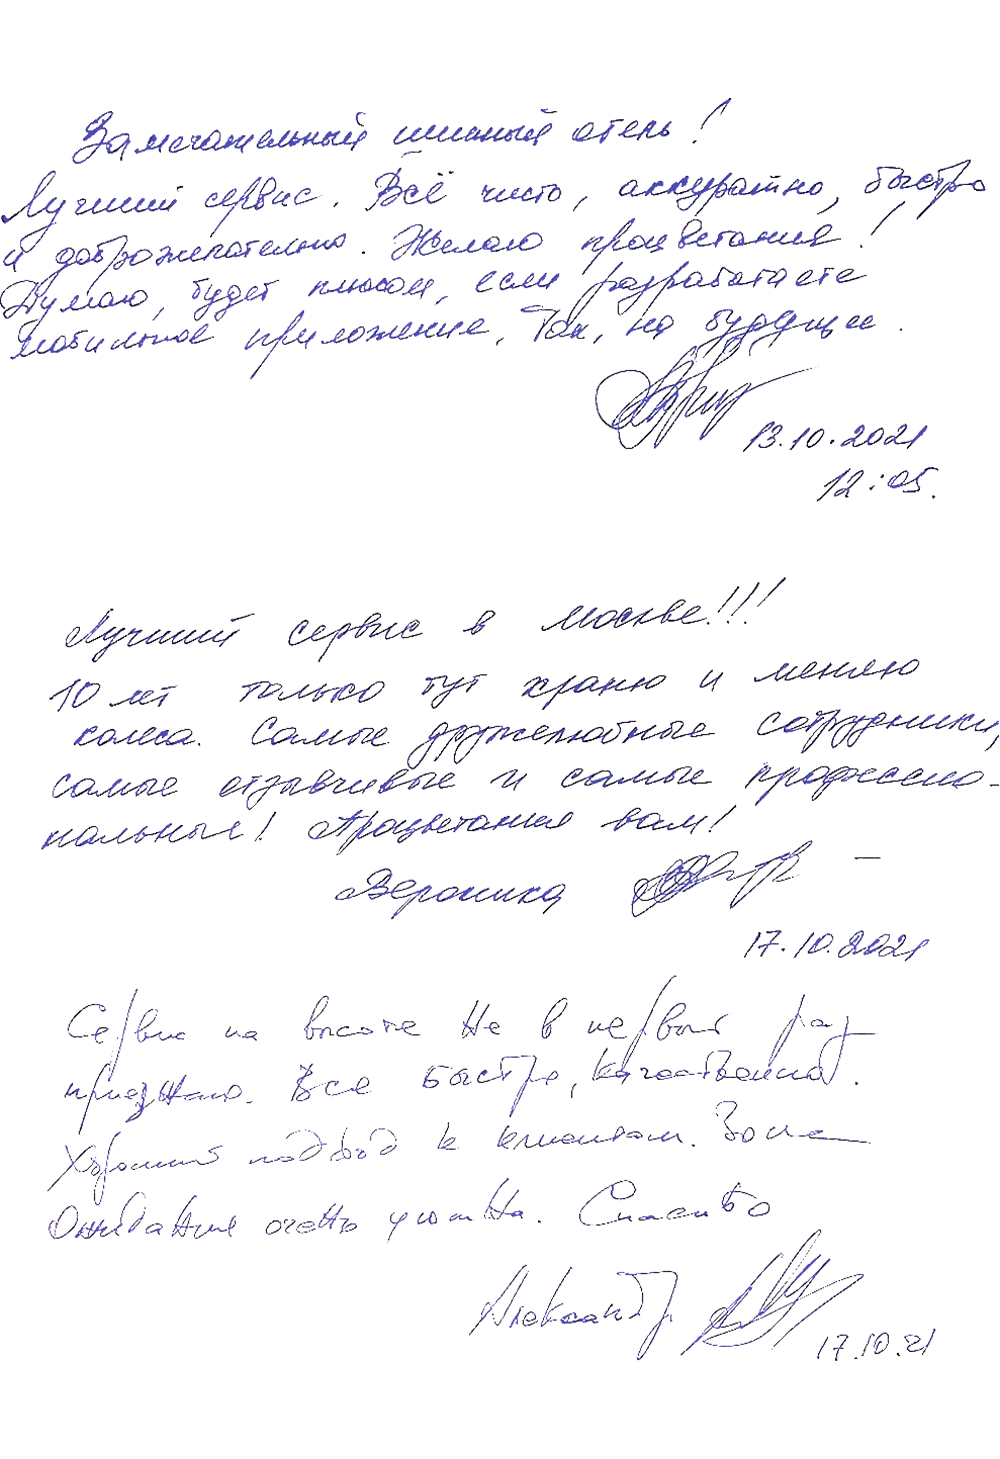 Замечательный шинный отель!
Лучший сервис. Всё чисто, аккуратно, быстро
и доброжелательно. Желаю процветания!
Думаю, будет плюсом, если разработаете
мобильное приложение. Так, на будущее.
13.10.2021
12:05.
Лучший сервис в Москве!!!
10 лет только тут храню и меняю
колеса. Самые дружелюбные сотрудники,
самые отзывчивые и самые профессио-
нальные! Процветания вам!
Вероника
17.10.2021
Сервис на высоте Не в первый раз
приезжаю. Все быстро, качественно.
Хороший подход к клиентам. Зона
Ожидания очень уютна. Спасибо
Александр
17.10.21